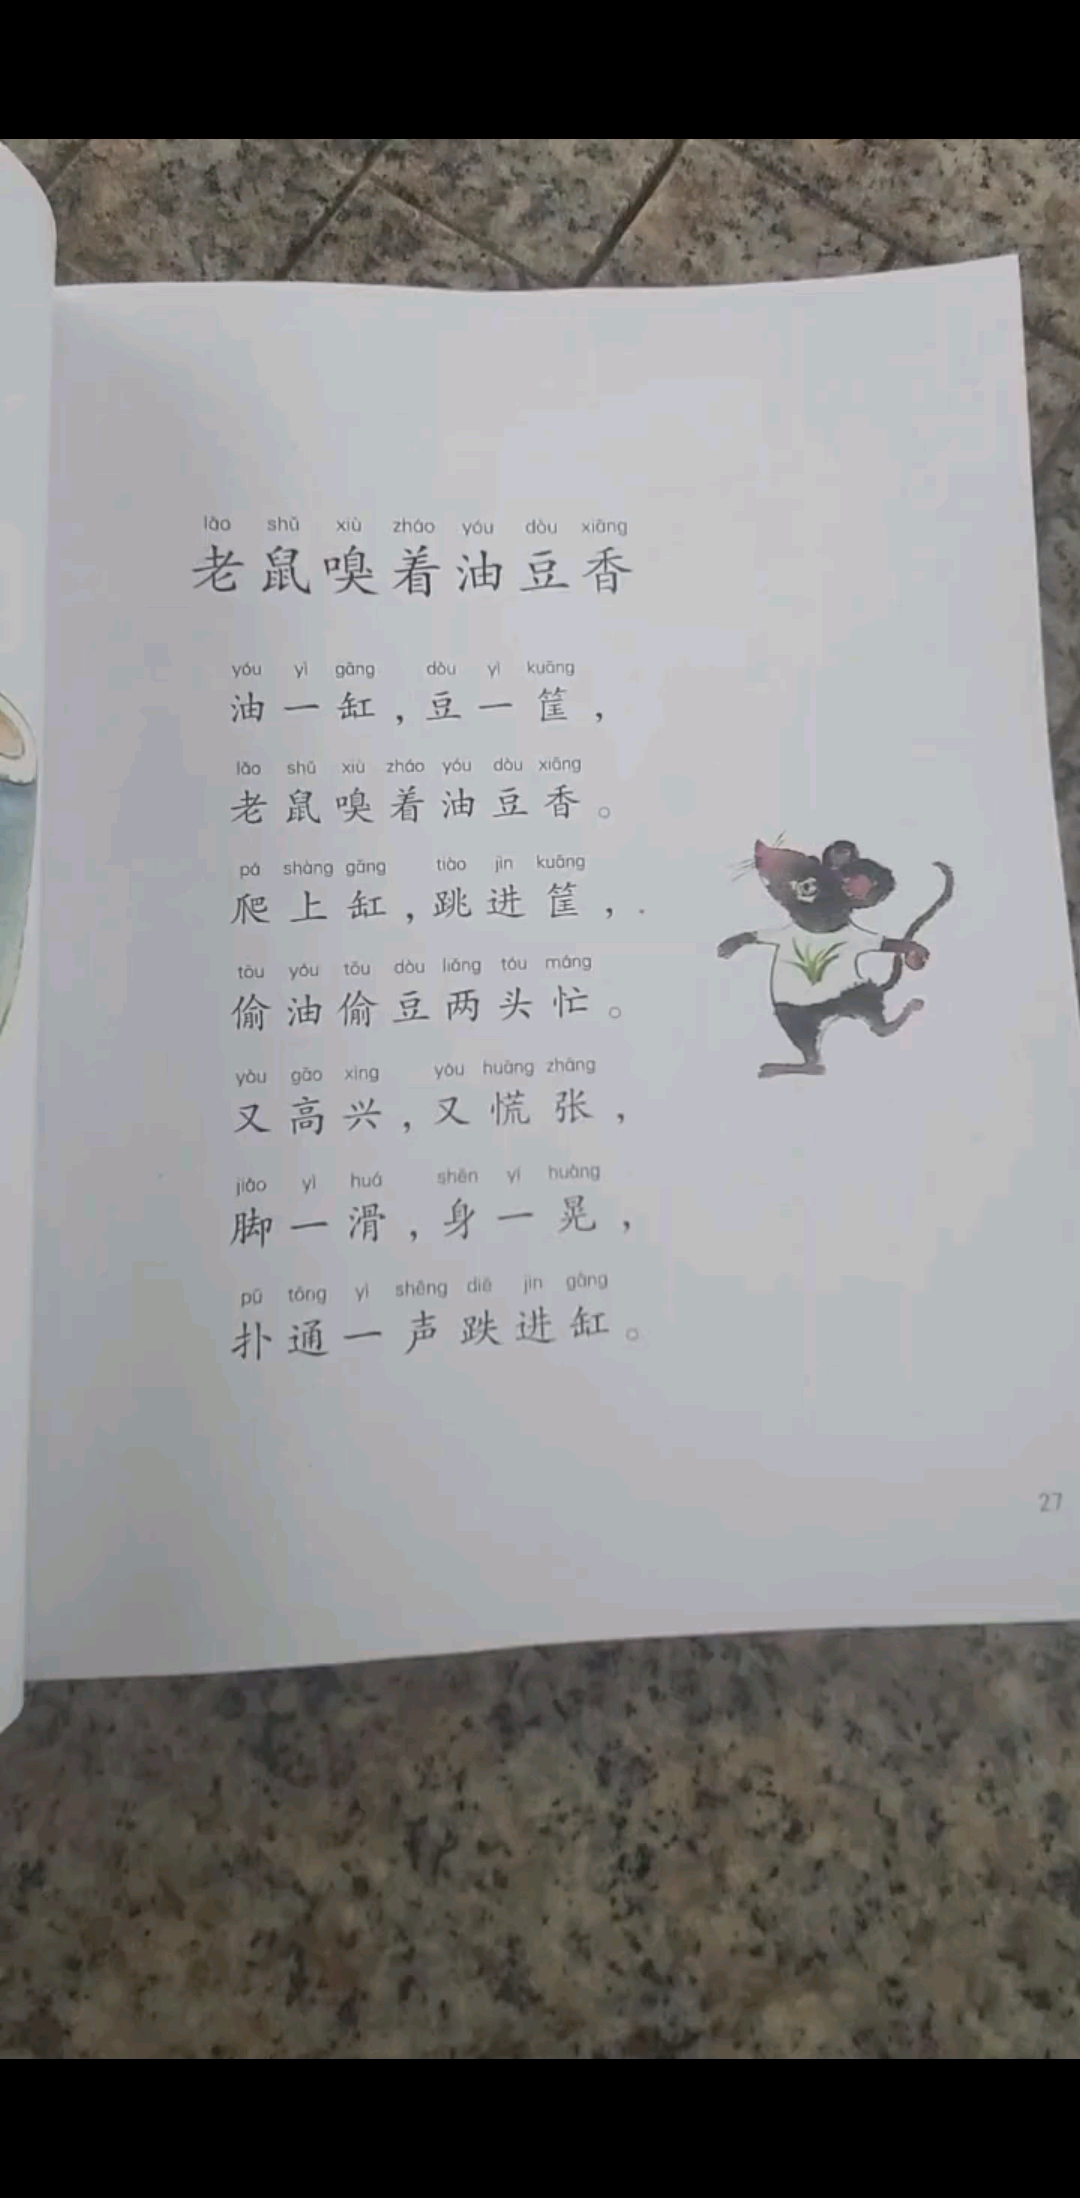 lǎo shǔ xiù zháo yóu dòu xiāng
老鼠嗅着油豆香
yóu yì gāng dòu yì kuāng
油一缸，豆一筐，
lǎo shǔ xiù zháo yóu dòu xiāng
老鼠嗅着油豆香。
pá shàng gāng tiào jìn kuāng
爬上缸，跳进筐，
tōu yóu tōu dòu liǎng tóu máng
偷油偷豆两头忙。
yòu gāo xìng yòu huāng zhāng
又高兴，又慌张，
jiǎo yì huá shēn yí huàng
脚一滑，身一晃，
pū tōng yì shēng diē jìn gāng
扑通一声跌进缸。
27